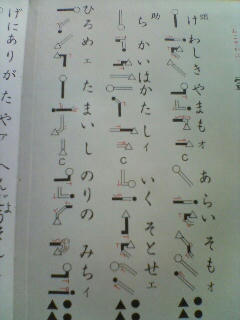 けわしきやまもォ あらいそもォ
助
ちかいはかたしィ C いくそとせェ
ひろめェ たまいし C のりのみちィ
げにありがたやァ